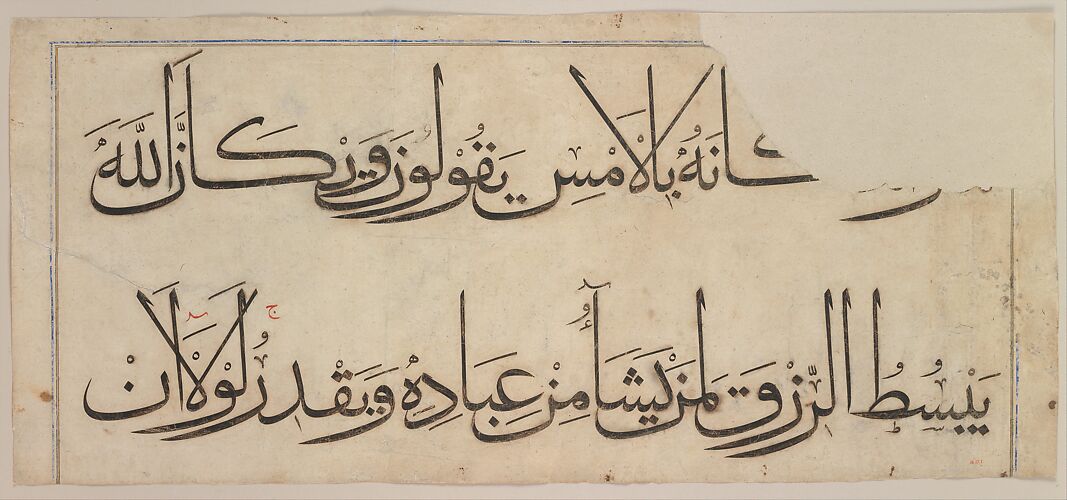 كَانَهُ بِالْاَمْسِ يَقُولُونَ وَيْكَاَنَّ اللّٰهَ
يَبْسُطُ الرِّزْقَ لِمَنْ يَشَآءُ مِنْ عِبَادِهٖ وَيَقْدِرُ لَوْلَا اَنْ